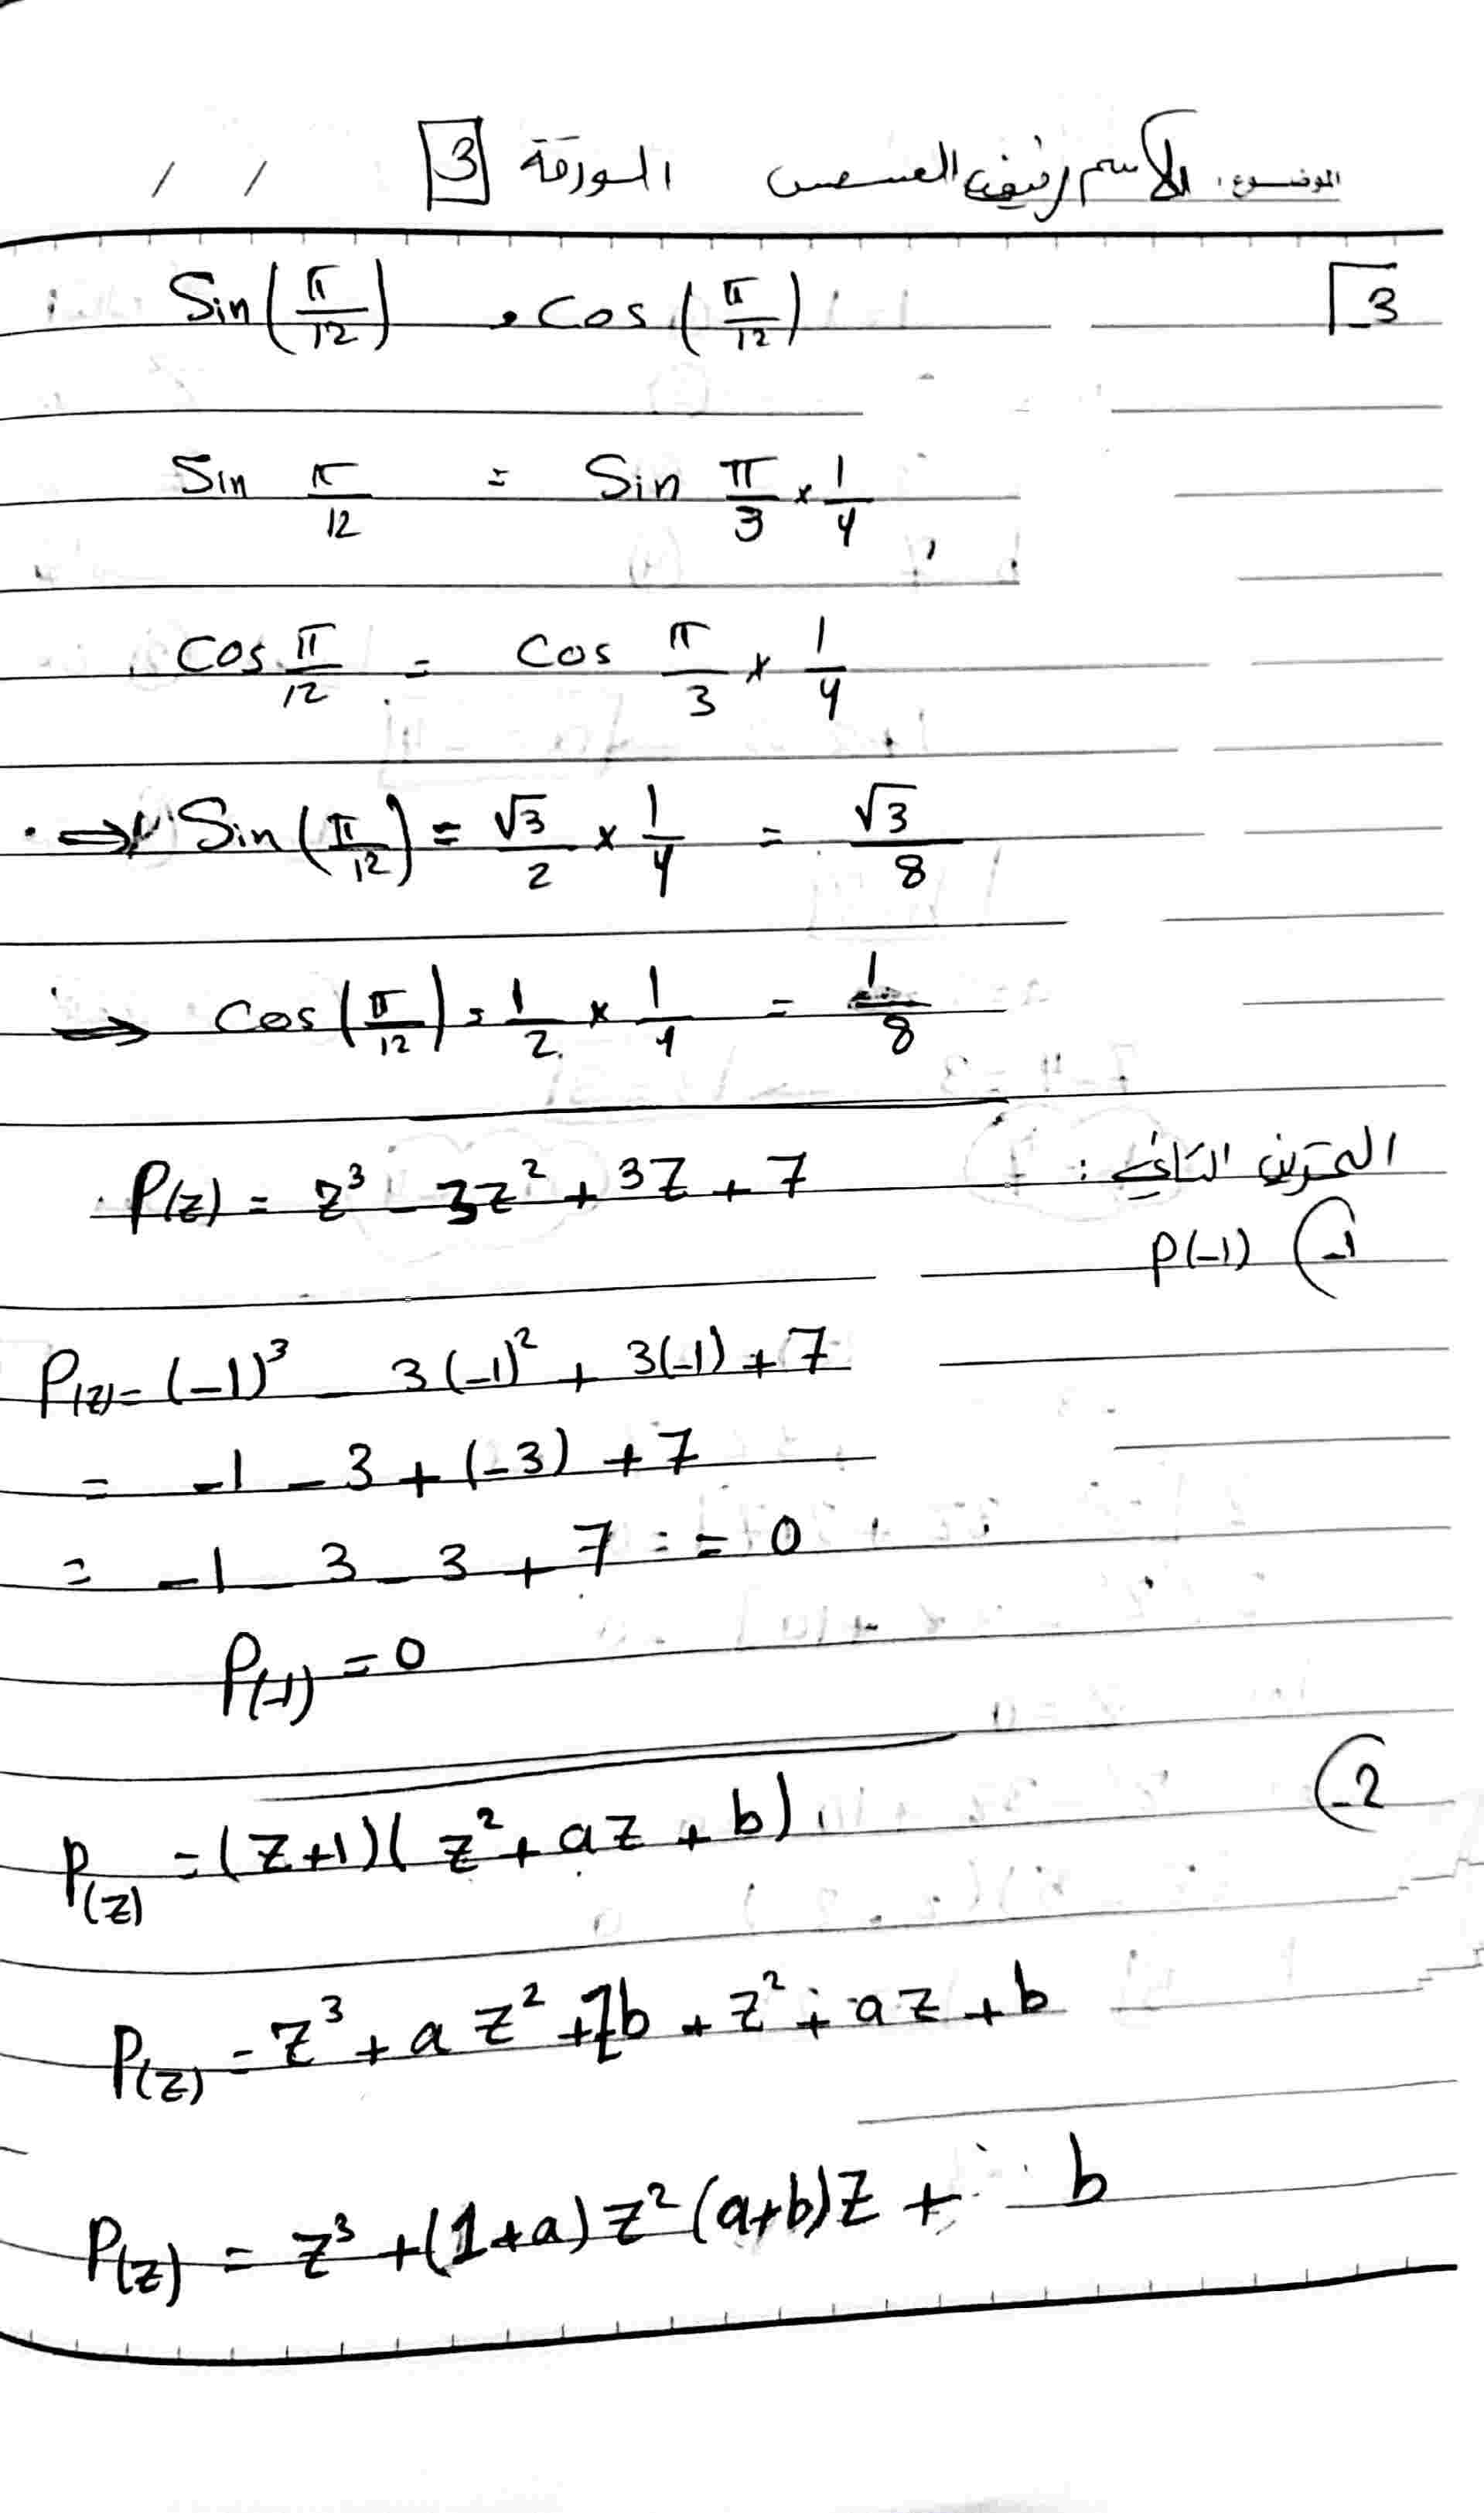 الموضوع: الاسم العسس الورقة 3 / /
3 Sin(π/12) , cos(π/12)
Sin π/12 = Sin π/3 × 1/4 ,
cos π/12 = cos π/3 × 1/4
⇒ Sin(π/12) = √3/2 × 1/4 = √3/8
⇒ cos(π/12) = 1/2 × 1/4 = 1/8
التمرين الثاني : P(z) = z³ - 3z² + 3z + 7
1- P(-1)
P(z) = (-1)³ - 3(-1)² + 3(-1) + 7
= -1 - 3 + (-3) + 7
= -1 - 3 - 3 + 7 = = 0
P(-1) = 0
2- P(z) = (z+1)(z² + az + b)
P(z) = z³ + a z² + zb + z² + az + b
P(z) = z³ + (1+a) z² (a+b)z + b